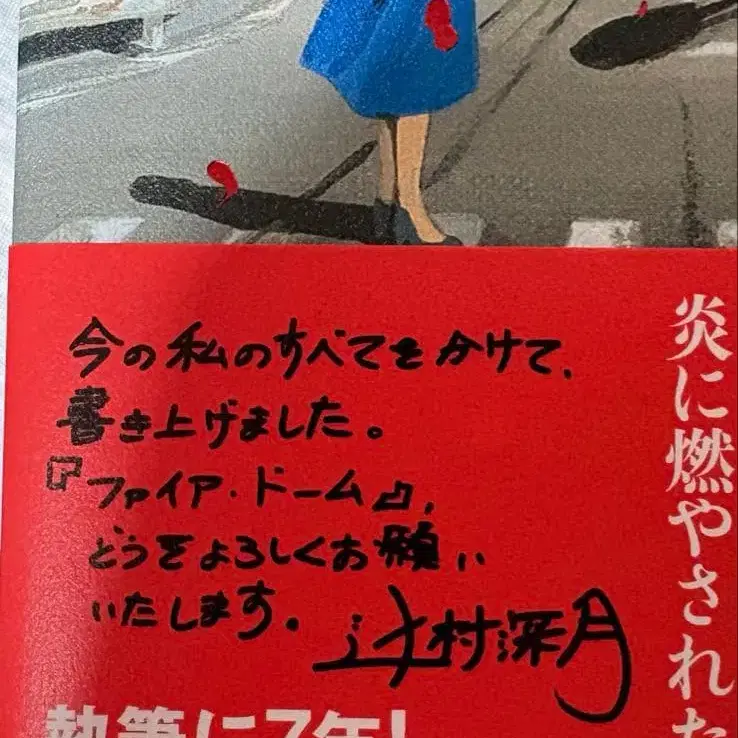 今の私のすべてをかけて、
書き上げました。
『ファイア・ドーム』、
どうぞよろしくお願い
いたします。
辻村深月
炎に燃やされた
執筆に7年!